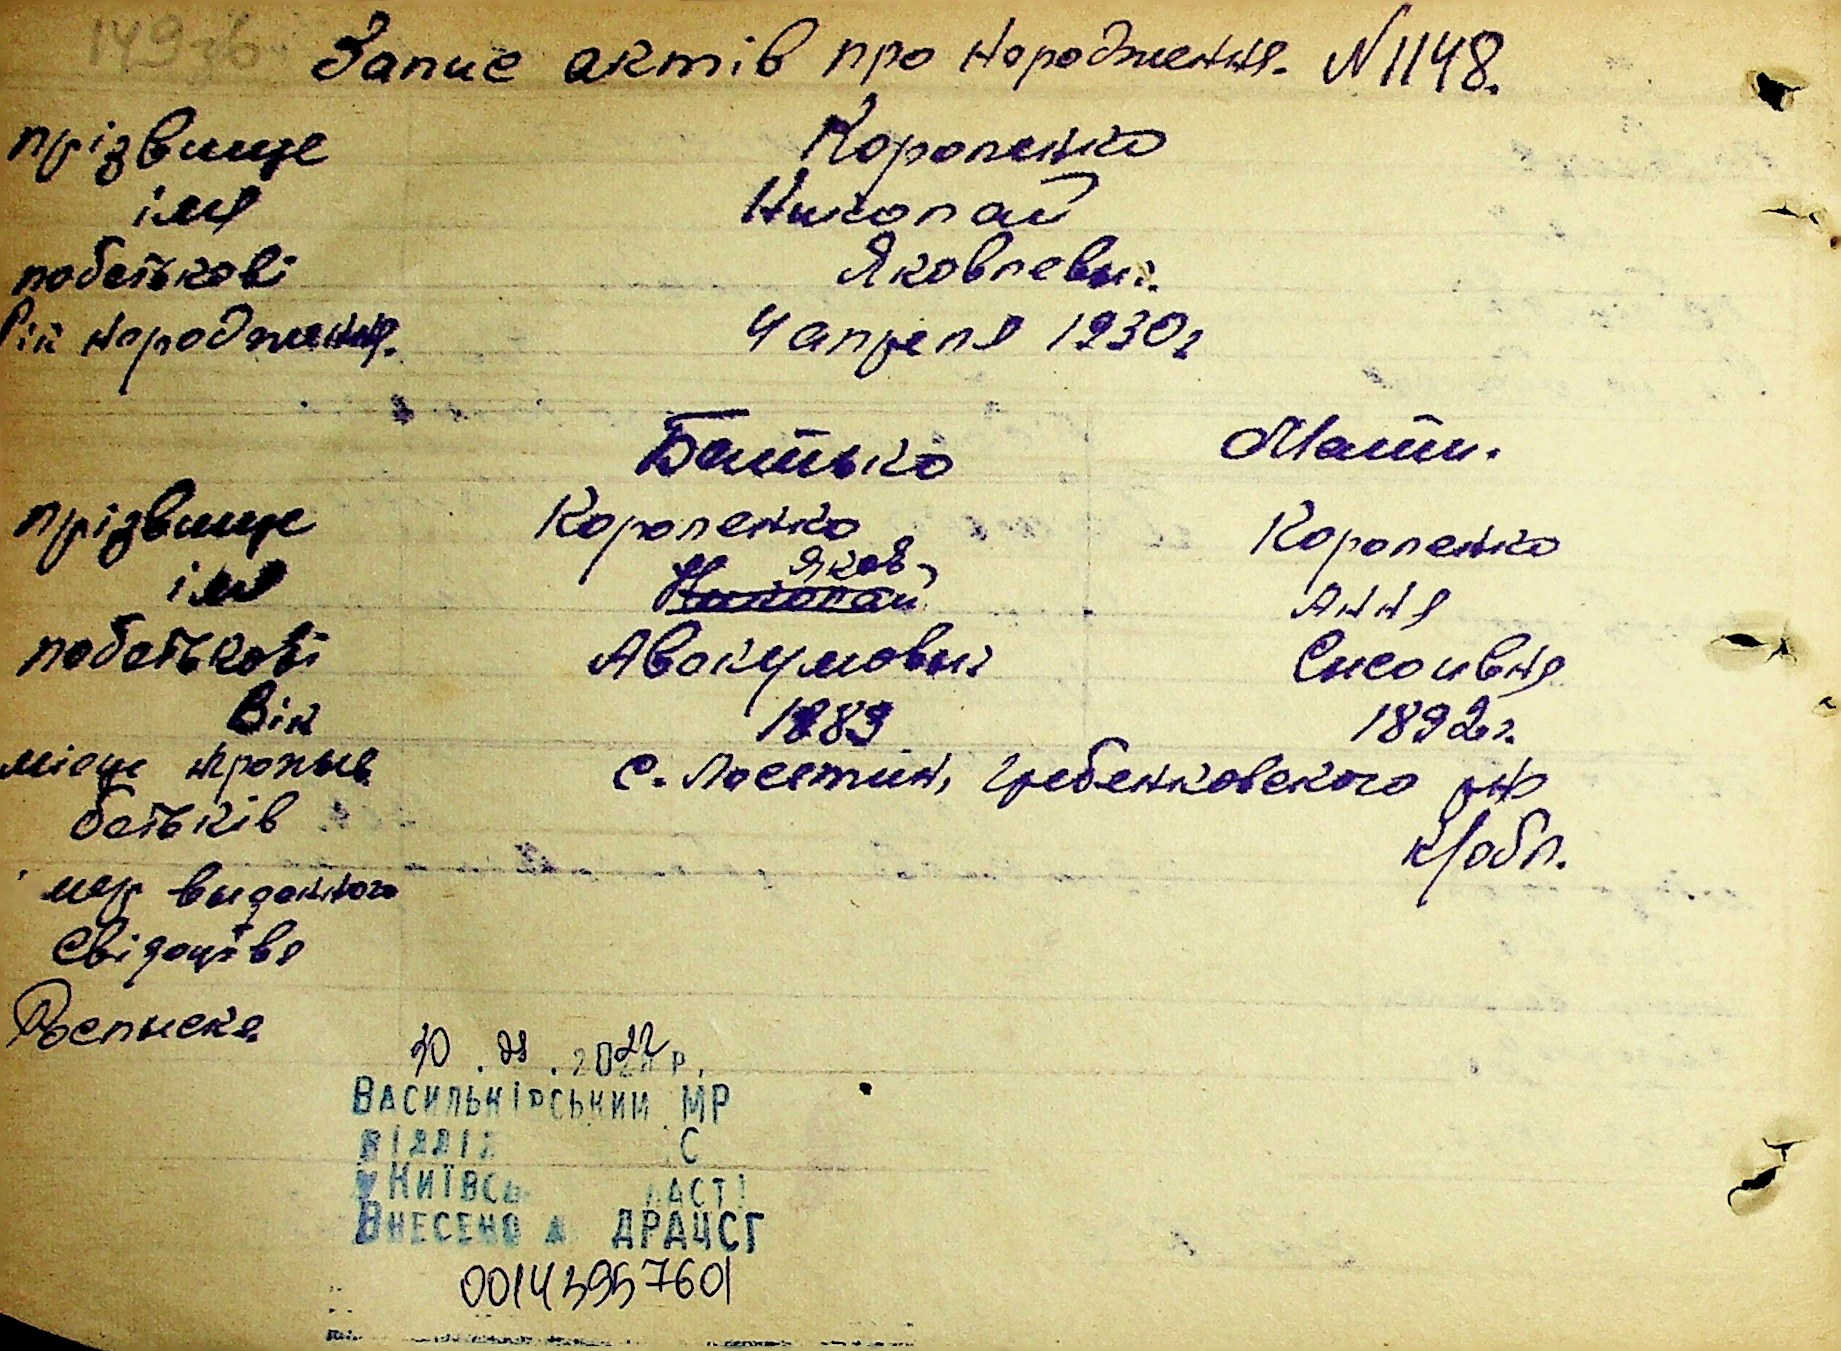 149 зв
Запис актів про народження. N 1148.
прізвище Короленко
імя Николай
побатькові Яковлевич.
Рік народження. 4 апреля 1930г
Батько Мати.
прізвище Короленко Короленко
імя Николай Яков Анна
побатькові Авакумович Сисоивна
Вік 1889 1892г.
місце прожив с. Лосятин, Гребенковского рна
батьків К/обл.
мер виданного
Свідоцтва
Росписка
2022 р.
ВАСИЛЬКІВСЬКИЙ МР
ВІДДІЛ С
КИЇВСЬ ЛАСТІ
ВНЕСЕНО ДРАЦСГ
00143957601